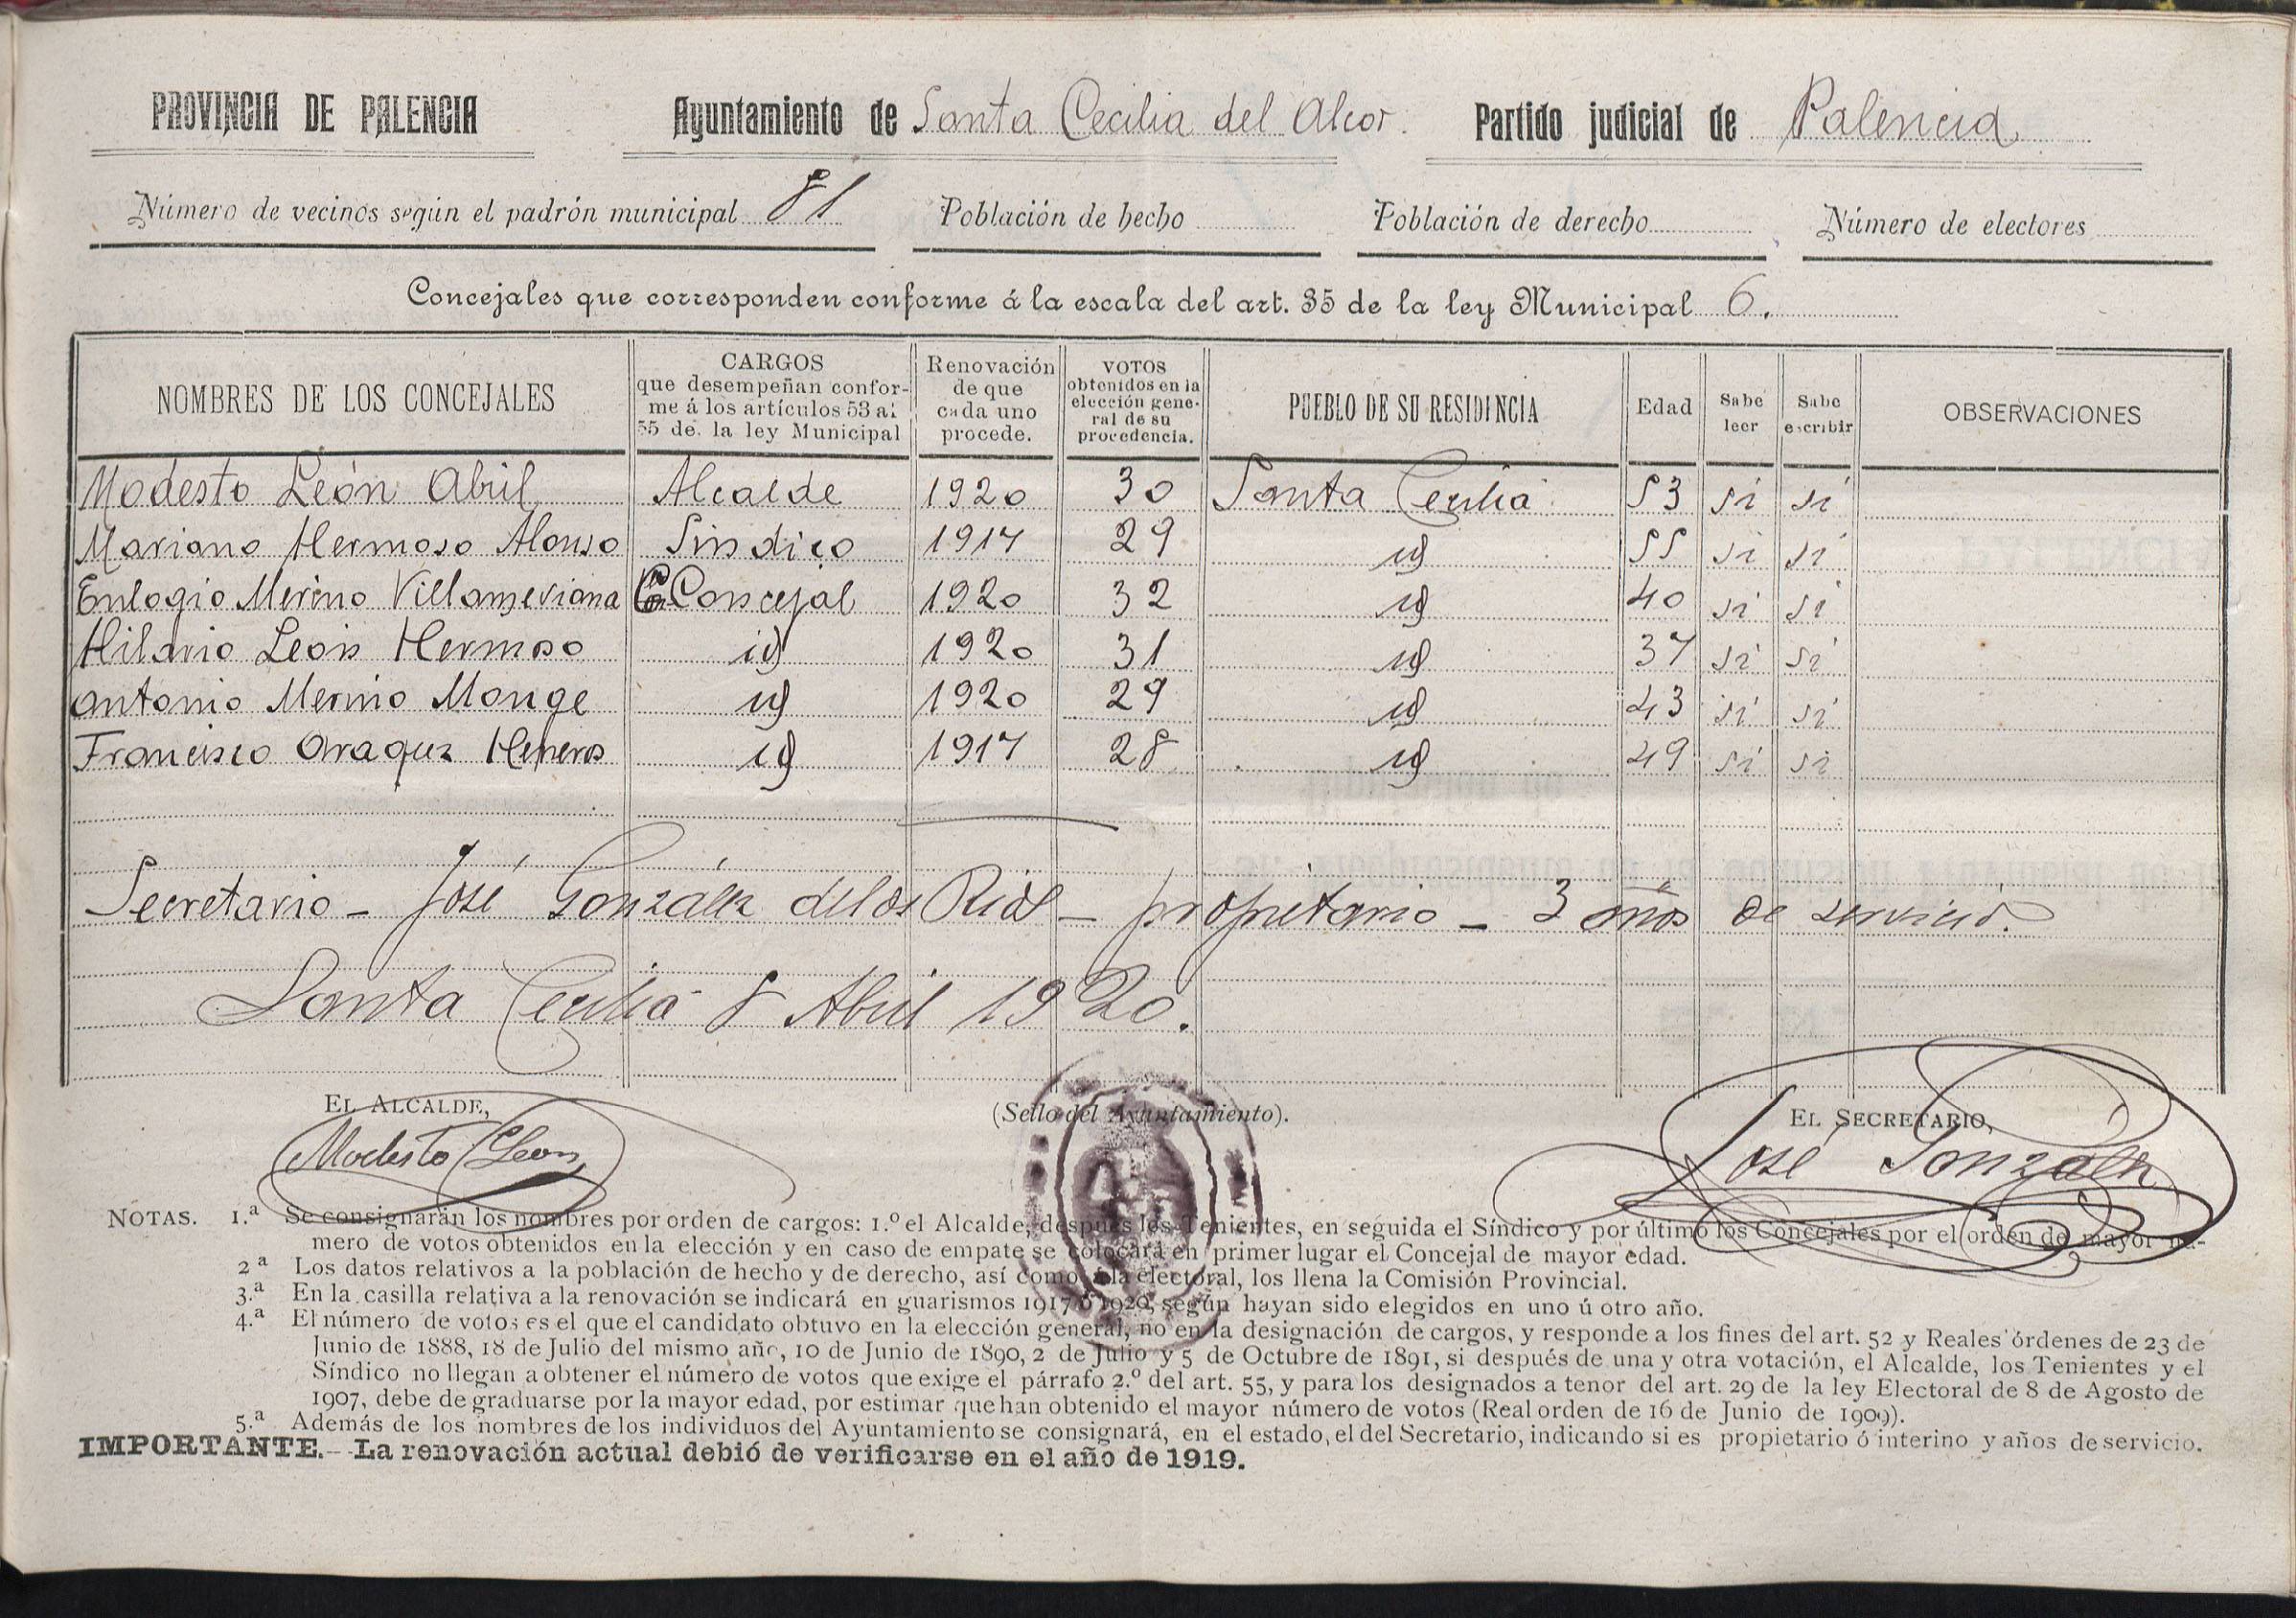 PROVINCIA DE PALENCIA Ayuntamiento de Santa Cecilia del Alcor. Partido judicial de Palencia
Número de vecinos según el padrón municipal 81 Población de hecho Población de derecho Número de electores
Concejales que corresponden conforme á la escala del art. 35 de la ley Municipal 6.
NOMBRES DE LOS CONCEJALES
CARGOS
que desempeñan confor-
me á los artículos 53 al
55 de la ley Municipal
Renovación
de que
cada uno
procede.
VOTOS
obtenidos en la
elección gene-
ral de su
procedencia.
PUEBLO DE SU RESIDENCIA
Edad
Sabe
leer
Sabe
escribir
OBSERVACIONES
Modesto León Abril Alcalde 1920 30 Santa Cecilia 53 si si
Mariano Hermoso Alonso Sindico 1917 29 id 55 si si
Eulogio Merino Villameriana Concejal 1920 32 id 40 si si
Hilario León Hermoso id 1920 31 id 37 si si
Antonio Merino Monge id 1920 29 id 43 si si
Francisco Araquz 1917 28 id 49 si si
Secretario - José González de los Rios - propietario - 3 años de servicio.
Santa Cecilia 8 Abril 1920.
EL ALCALDE,
Modesto Leon
(Sello del Ayuntamiento).
EL SECRETARIO,
José Gonzalez
NOTAS. 1.ª Se consignarán los nombres por orden de cargos: 1.º el Alcalde, después los Tenientes, en seguida el Síndico y por último los Concejales por el orden de mayor nú-
mero de votos obtenidos en la elección y en caso de empate se colocará en primer lugar el Concejal de mayor edad.
2ª Los datos relativos a la población de hecho y de derecho, así como á la electoral, los llena la Comisión Provincial.
3.ª En la casilla relativa a la renovación se indicará en guarismos 1917 ó 1920, según hayan sido elegidos en uno ú otro año.
4.ª El número de votos es el que el candidato obtuvo en la elección general, no en la designación de cargos, y responde a los fines del art. 52 y Reales órdenes de 23 de
Junio de 1888, 18 de Julio del mismo año, 10 de Junio de 1890, 2 de Julio y 5 de Octubre de 1891, si después de una y otra votación, el Alcalde, los Tenientes y el
Síndico no llegan a obtener el número de votos que exige el párrafo 2.º del art. 55, y para los designados a tenor del art. 29 de la ley Electoral de 8 de Agosto de
1907, debe de graduarse por la mayor edad, por estimar que han obtenido el mayor número de votos (Real orden de 16 de Junio de 1909).
5.ª Además de los nombres de los individuos del Ayuntamiento se consignará, en el estado, el del Secretario, indicando si es propietario ó interino y años de servicio.
IMPORTANTE.—La renovación actual debió de verificarse en el año de 1919.